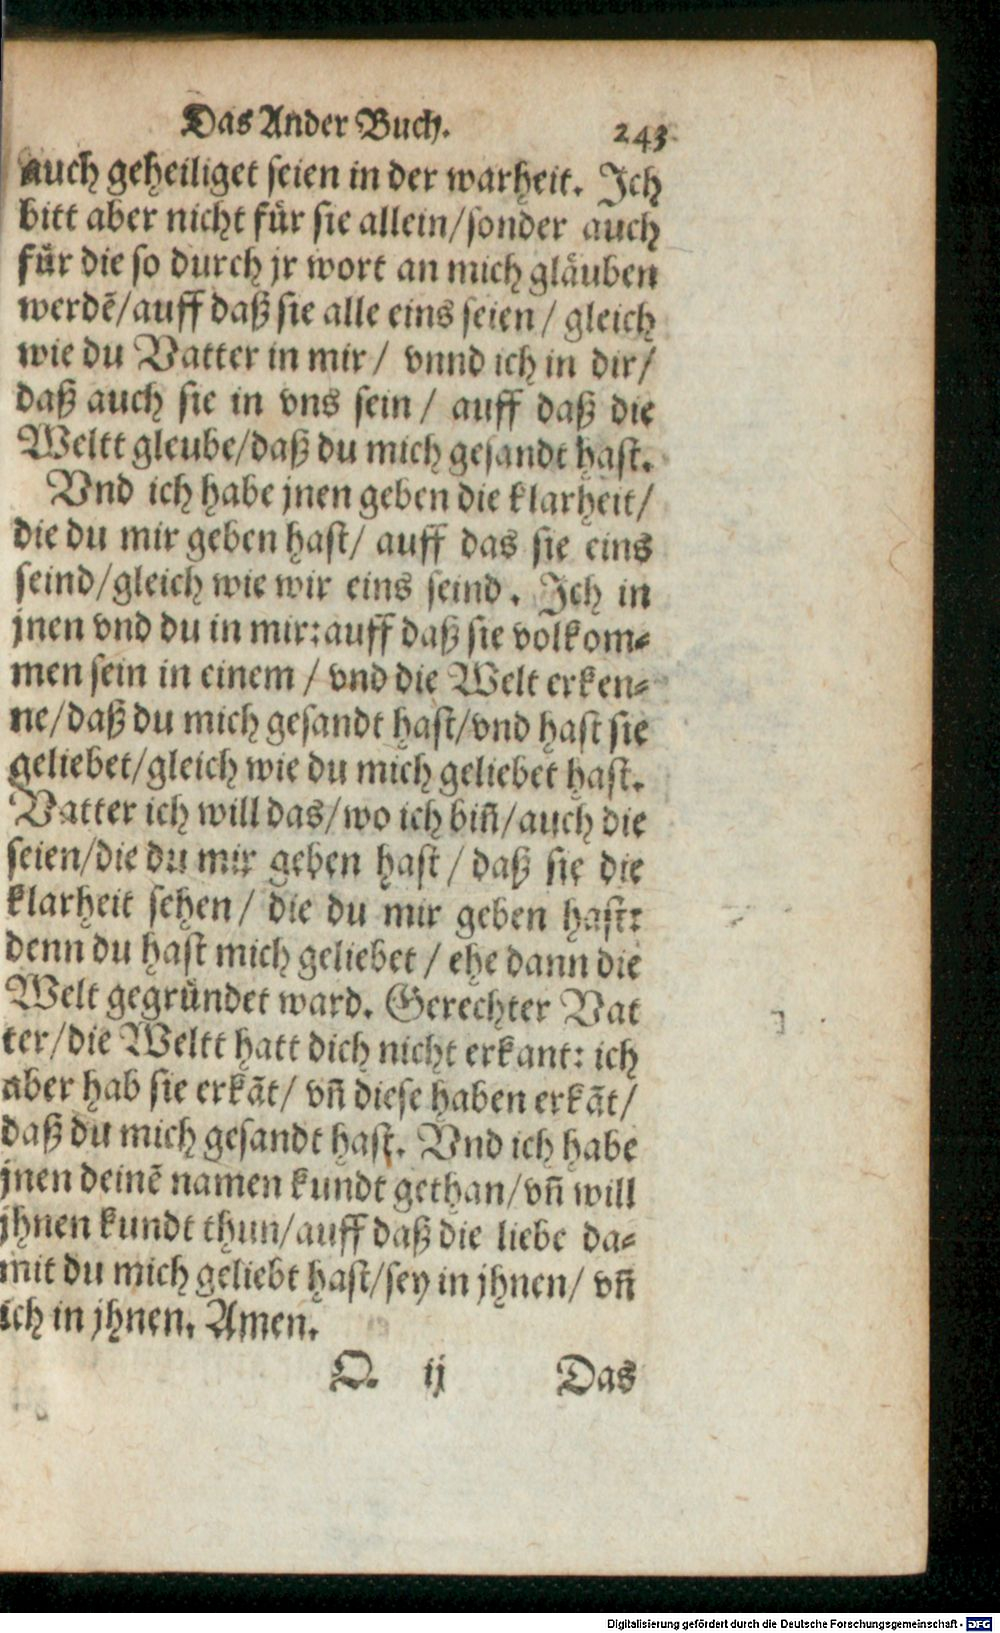 Das Ander Buch. 243
auch geheiliget seien in der warheit. Ich
bitt aber nicht für sie allein/sonder auch
für die so durch jr wort an mich gläuben
werdē/auff daß sie alle eins seien / gleich
wie du Vatter in mir / vnnd ich in dir/
daß auch sie in vns sein / auff daß die
Weltt gleube/daß du mich gesandt hast.
Vnd ich habe jnen geben die klarheit/
die du mir geben hast/ auff das sie eins
seind/gleich wie wir eins seind. Ich in
jnen vnd du in mir:auff daß sie volkom-
men sein in einem / vnd die Welt erken-
ne/daß du mich gesandt hast/vnd hast sie
geliebet/gleich wie du mich geliebet hast.
Vatter ich will das/wo ich biñ/auch die
seien/die du mir geben hast / daß sie die
klarheit sehen/ die du mir geben hast:
denn du hast mich geliebet / ehe dann die
Welt gegründet ward. Gerechter Vat
ter/die Weltt hatt dich nicht erkant: ich
aber hab sie erkāt/ vñ diese haben erkāt/
daß du mich gesandt hast. Vnd ich habe
jnen deinē namen kundt gethan/vñ will
jhnen kundt thun/auff daß die liebe da-
mit du mich geliebt hast/sey in jhnen/ vñ
ich in jhnen. Amen.
Q. ij Das
Digitalisierung gefördert durch die Deutsche Forschungsgemeinschaft - DFG